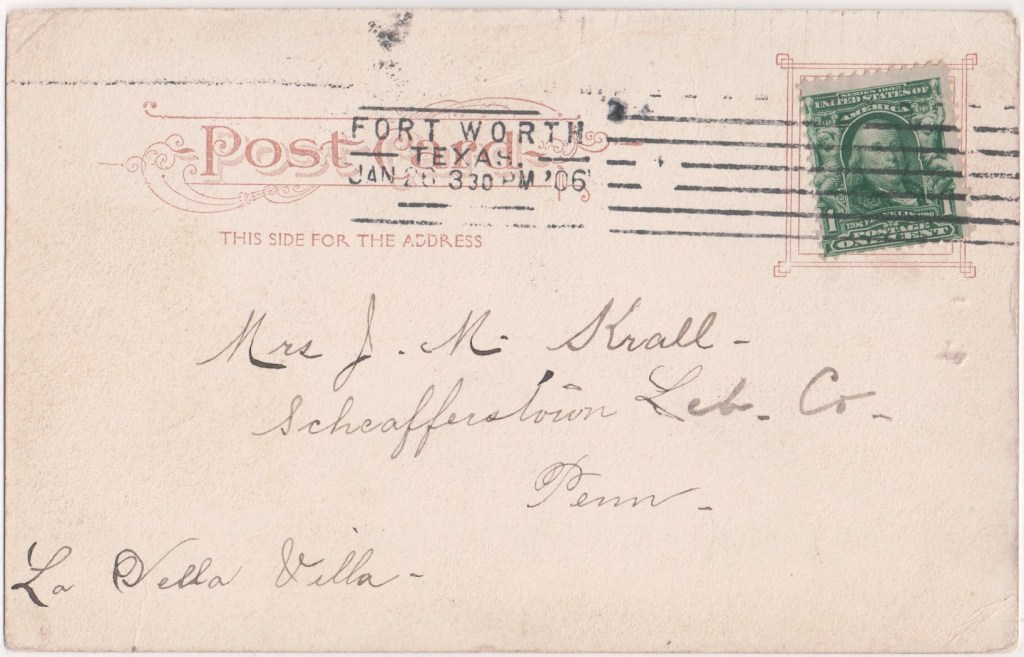 Post Card.
FORT WORTH
TEXAS.
JAN 26 330 PM '06
THIS SIDE FOR THE ADDRESS
SERIES 1902
UNITED STATES OF
AMERICA
1 1
FRANKLIN
1706 1790
POSTAGE
ONE CENT
Mrs J. M. Krall -
Scheafferstown Leb. Co.
Penn.
La Vella Villa -